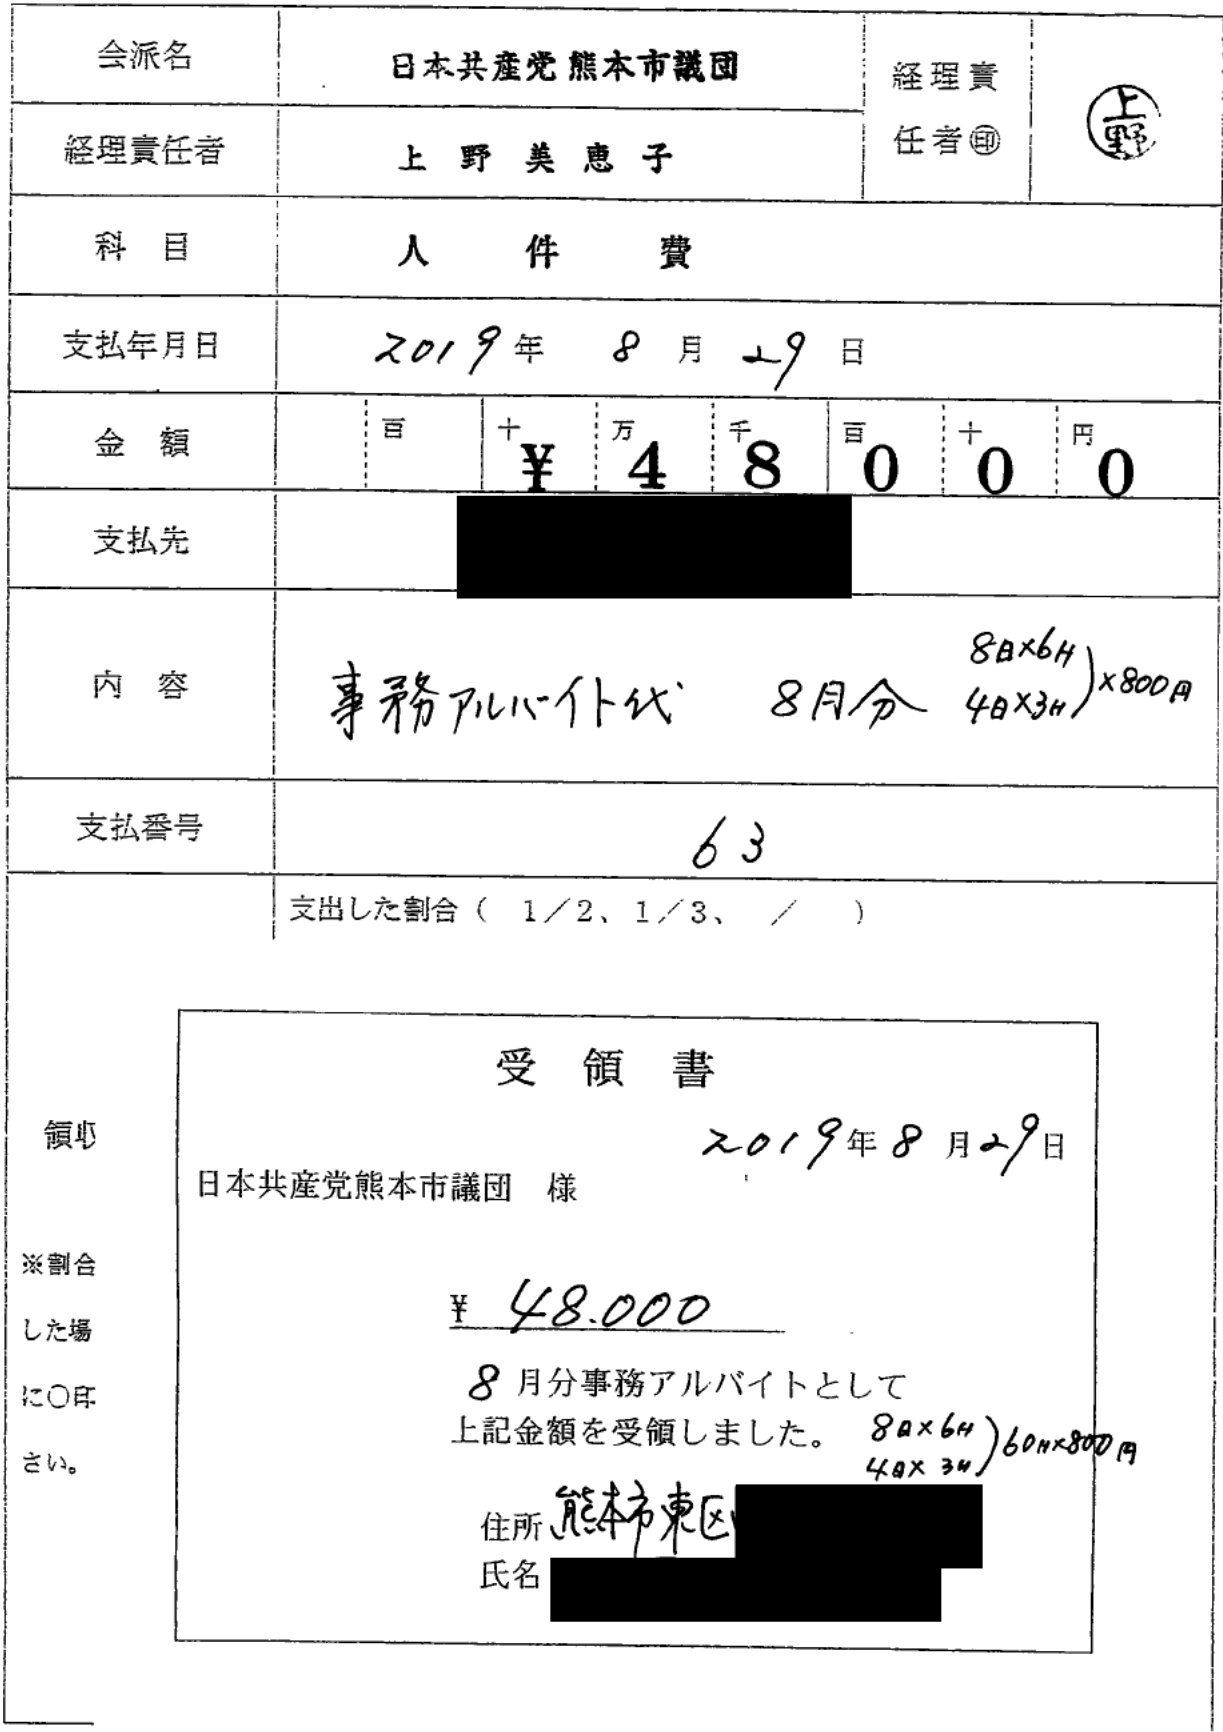 会派名 日本共産党熊本市議団 経理責
任者㊞ 上野
経理責任者 上野美恵子
科目 人件費
支払年月日 2019年 8月 29日
金額 百 十 万 千 百 十 円
¥48000
支払先
内容 事務アルバイト代 8月分 8日×6H
4日×3H)×800円
支払番号 63
支出した割合( 1/2、1/3、 / )
受領書
領収
2019年8月29日
日本共産党熊本市議団 様
※割合
した場
に〇印
さい。
¥ 48.000
8月分事務アルバイトとして
上記金額を受領しました。 8日×6H
4日×3H)60H×800円
住所 熊本市東区
氏名